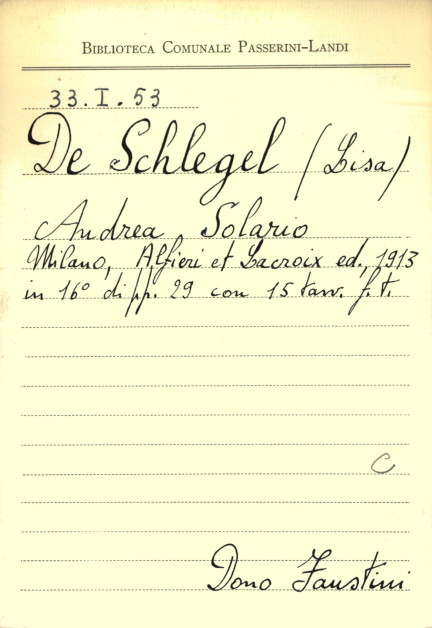 BIBLIOTECA COMUNALE PASSERINI-LANDI
33.I.53
De Schlegel (Lisa)
Andrea Solario
Milano, Alfieri et Lacroix ed, 1913
in 16° di pp. 29 con 15 tavv. f.t.
C
Dono Faustini